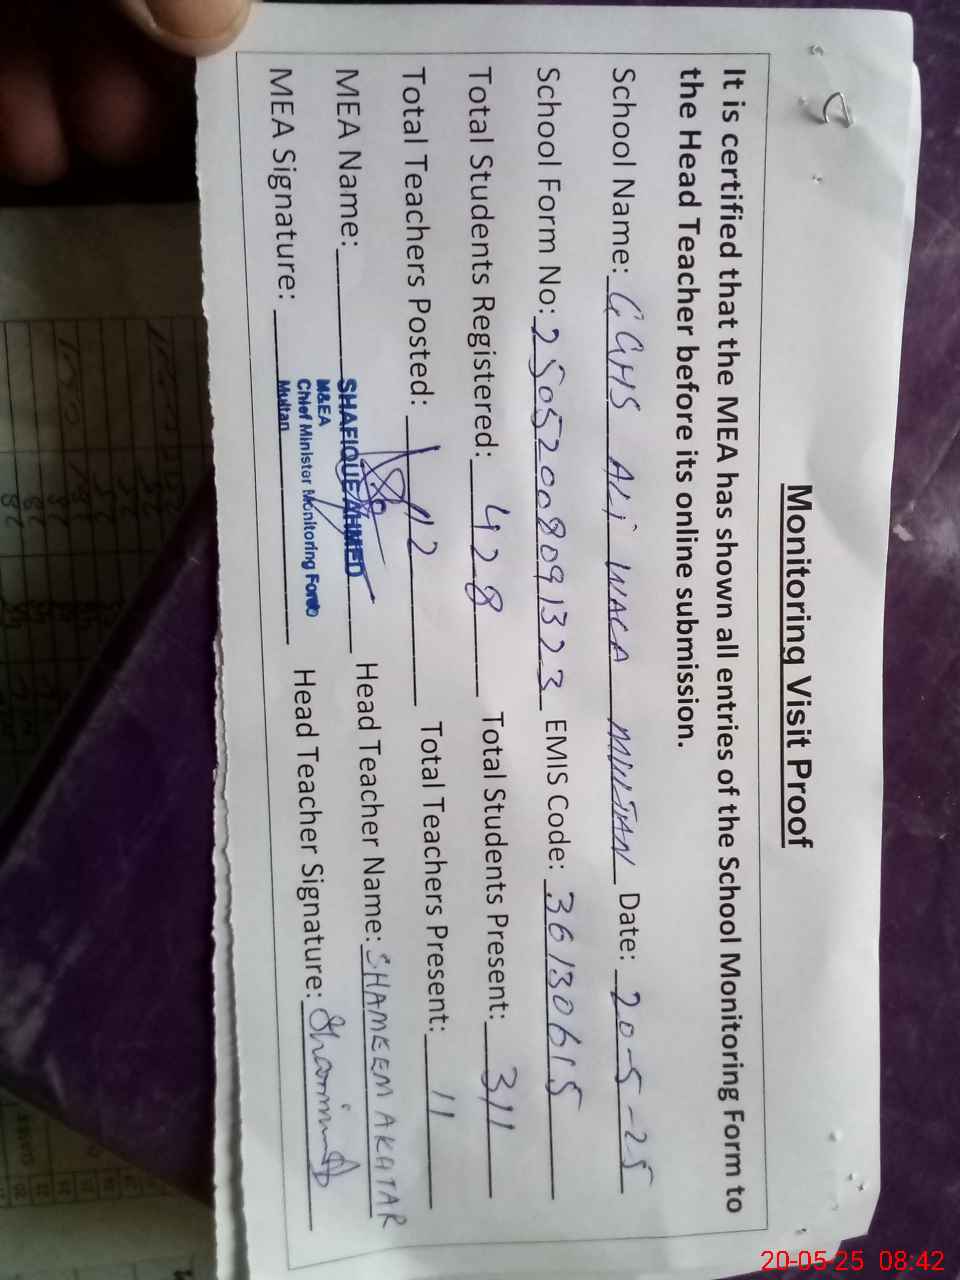 Monitoring Visit Proof
It is certified that the MEA has shown all entries of the School Monitoring Form to
the Head Teacher before its online submission.
School Name: GGHS ALI WALA MULTAN Date: 20-5-25
School Form No: 25052008091323 EMIS Code: 36130615
Total Students Registered: 428 Total Students Present: 311
Total Teachers Posted: 12 Total Teachers Present: 11
MEA Name: SHAFIQUE AHMED Head Teacher Name: SHAMEEM AKHTAR
M&EA
Chief Minister Monitoring Force
Multan
MEA Signature: Head Teacher Signature:
20-05-25 08:42